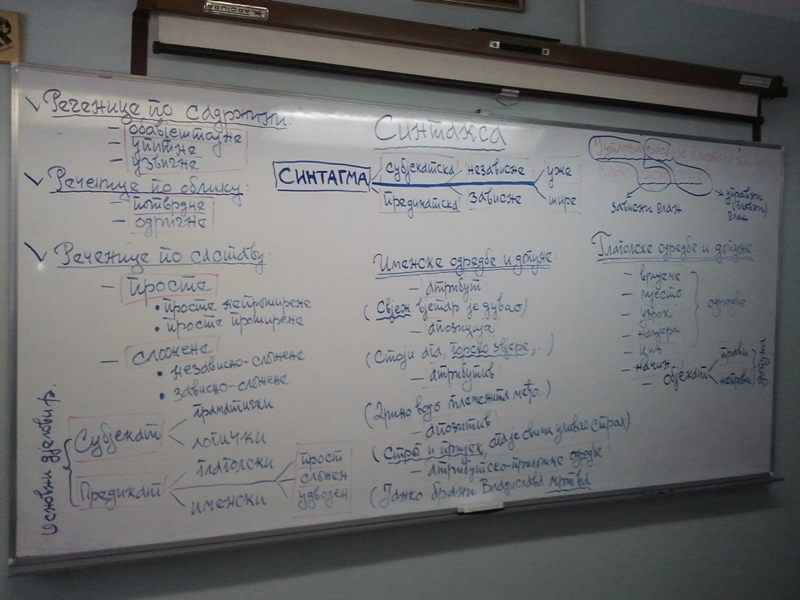 Реченице по садржини:
– обавјештајне
– упитне
– узвичне
Реченице по облику:
– потврдне
– одричне
Реченице по саставу:
– просте
• просте непроширене
• просте проширене
– сложене
• независно-сложене
• зависно-сложене
Основни дјелови р.
Субјекат
граматички
логички
Предикат
глаголски
именски
прост
сложен
удвојен
Синтакса
СИНТАГМА
субјекатска независне уже
предикатска зависне шире
Именске одредбе и допуне:
– атрибут
(Свјеж вјетар је дувао)
– апозиција
(Стоји ага, горско звјере, ...)
– атрибутив
(Дрино водо племенита међо...)
– апозитив
(Строг и пријек, ста је свима уливао страх)
– атрибутско-прилошке одредбе
(Јанко брани Владислава мртва
зависни члан
управни
(главни)
члан
Глаголске одредбе и допуне
– вријеме
– мјесто
– узрок
– намјера
– циљ
– начин
одредбе
– објекат
прави
неправи
допуна